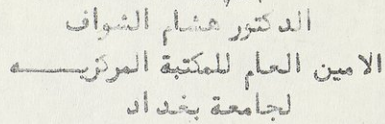 الدكتور هشام الشواف
الامين العام للمكتبة المركزيـــه
لجامعة بغداد